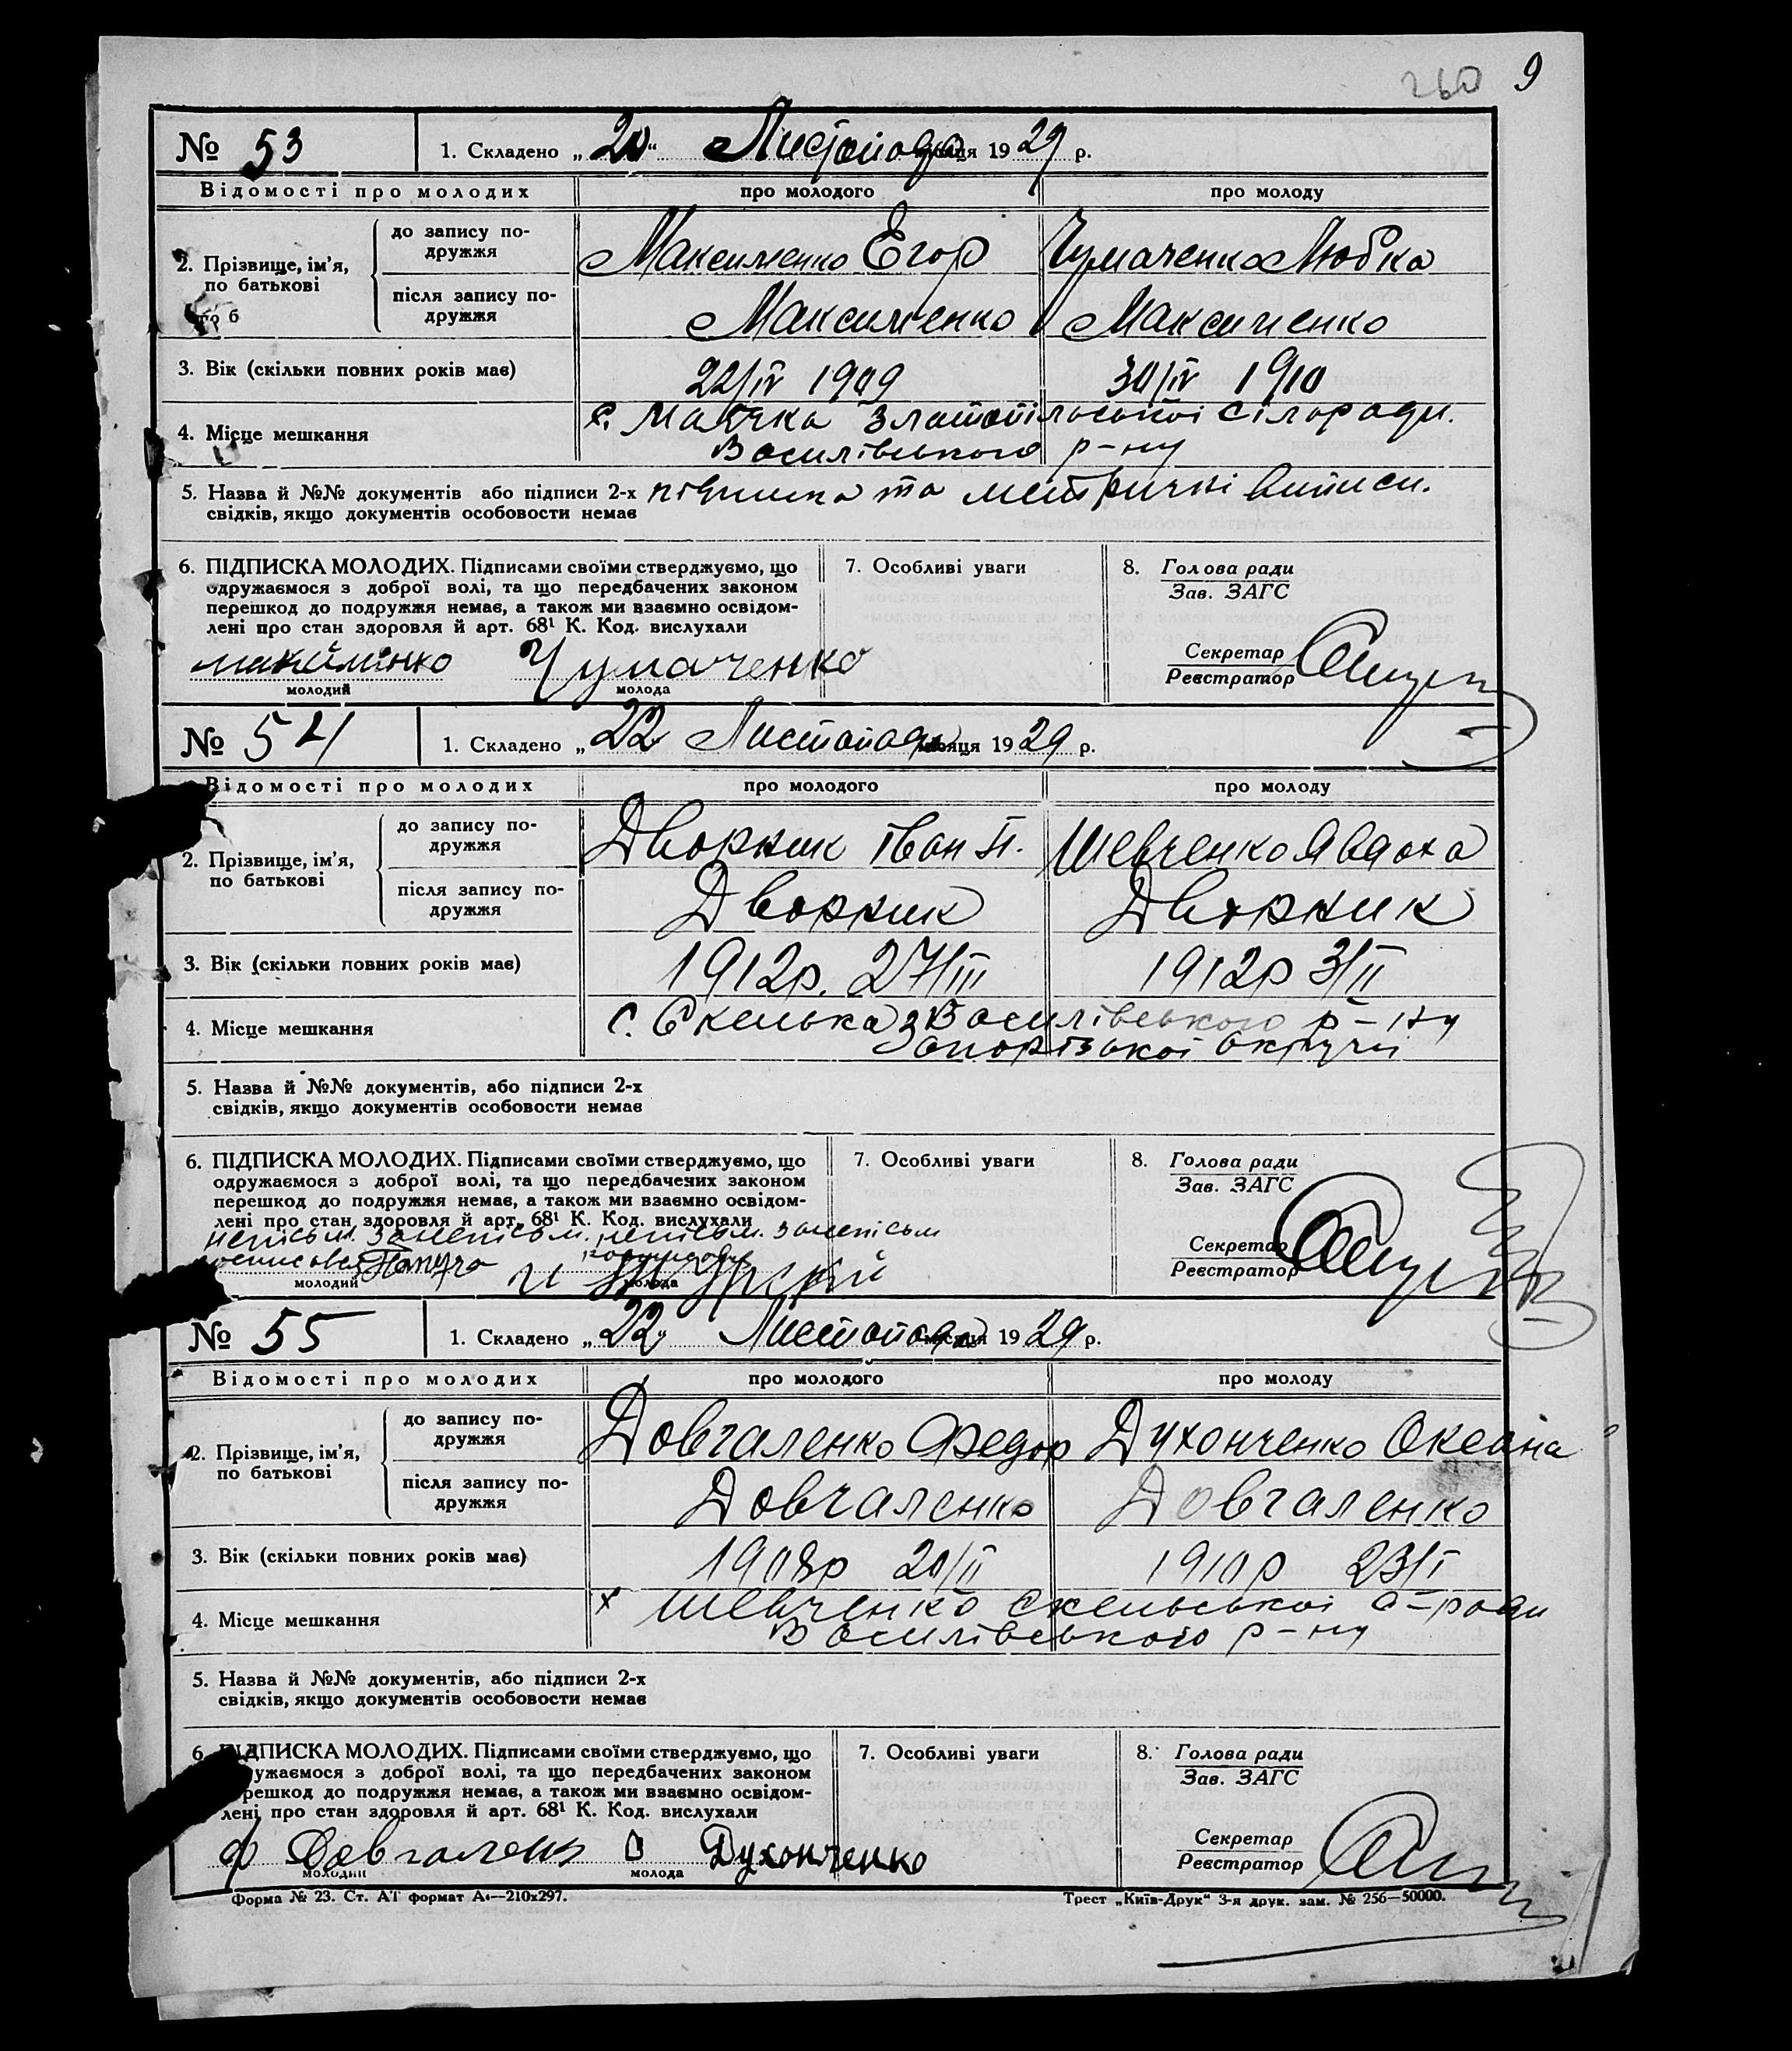 260 9
№ 53 1. Складено „20“ Листопада місяця 1929 р.
Відомості про молодих про молодого про молоду
2. Прізвище, ім'я, по батькові
до запису по-дружжя Максименко Егор Чумаченко Любка
після запису по-дружжя Максименко Максименко
3. Вік (скільки повних років має) 22/IV 1909 30/IV 1910
4. Місце мешкання с. Маячка Златопільської сілради.
Василівського р-ну
5. Назва й №№ документів або підписи 2-х підписка та метричні виписи.
свідків, якщо документів особовости немає
6. ПІДПИСКА МОЛОДИХ. Підписами своїми стверджуємо, що 7. Особливі уваги 8. Голова ради
одружаємося з доброї волі, та що передбачених законом Зав. ЗАГС
перешкод до подружжя немає, а також ми взаємно освідом-
лені про стан здоровля й арт. 68¹ К. Код. вислухали
Секретар
Чумаченко Реєстратор
молодий молода
№ 54 1. Складено „22“ Листопада місяця 1929 р.
Відомості про молодих про молодого про молоду
2. Прізвище, ім'я, по батькові
до запису по-дружжя Дворник Іван П. Шевченко Явдоха
після запису по-дружжя Дворник Дворник
3. Вік (скільки повних років має) 1912р. 27/III 1912р 3/II
4. Місце мешкання с. Скелька Василівського р-ну
Запорізької округи
5. Назва й №№ документів, або підписи 2-х
свідків, якщо документів особовости немає
6. ПІДПИСКА МОЛОДИХ. Підписами своїми стверджуємо, що 7. Особливі уваги 8. Голова ради
одружаємося з доброї волі, та що передбачених законом Зав. ЗАГС
перешкод до подружжя немає, а також ми взаємно освідом-
лені про стан здоровля й арт. 68¹ К. Код. вислухали
Секретар
Реєстратор
молодий молода
№ 55 1. Складено „22“ Листопада місяця 1929 р.
Відомості про молодих про молодого про молоду
2. Прізвище, ім'я, по батькові
до запису по-дружжя Довгаленко Федор Духонченко
після запису по-дружжя Довгаленко Довгаленко
3. Вік (скільки повних років має) 1908р 20/II 1910р 23/I
4. Місце мешкання х Шевченко Скельської с-ради
Василівського р-ну
5. Назва й №№ документів, або підписи 2-х
свідків, якщо документів особовости немає
6. ПІДПИСКА МОЛОДИХ. Підписами своїми стверджуємо, що 7. Особливі уваги 8. Голова ради
одружаємося з доброї волі, та що передбачених законом Зав. ЗАГС
перешкод до подружжя немає, а також ми взаємно освідом-
лені про стан здоровля й арт. 68¹ К. Код. вислухали
Секретар
Духонченко Реєстратор
молодий молода
Форма № 23. Ст. АТ формат А4—210x297. Трест „Київ-Друк“ 3-я друк. зам. № 256—50000.